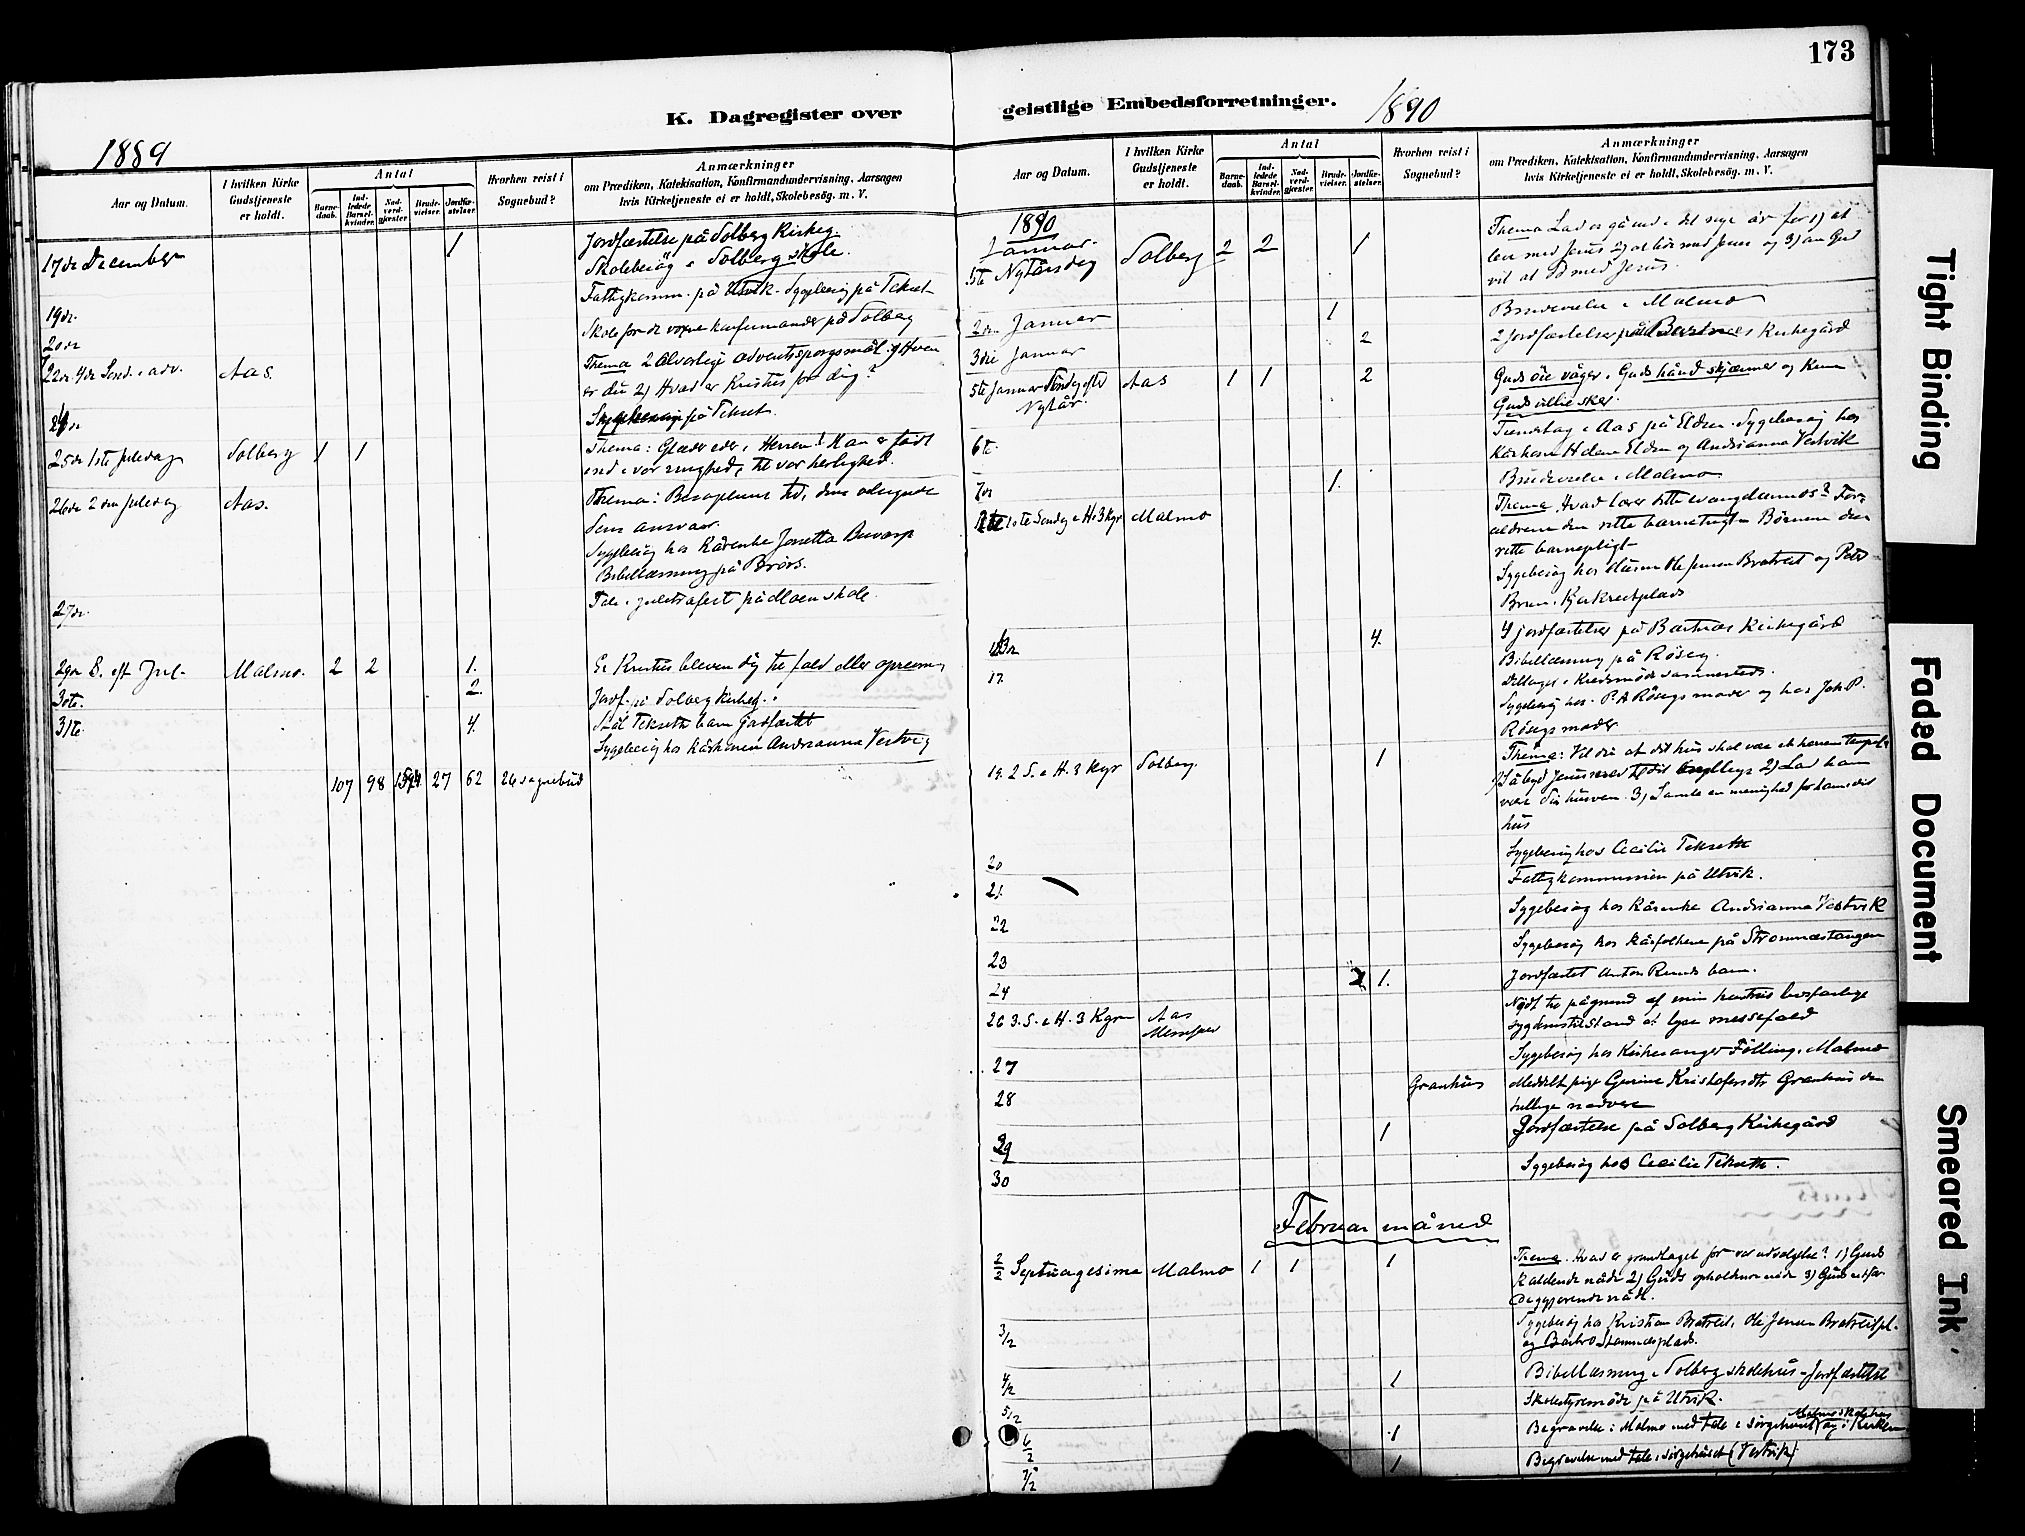 173
K. Dagregister over
geistlige Embedsforretninger.
1889
1890
Aar og Datum.
I hvilken Kirke Gudstjeneste er holdt.
Antal
Barnedaab.
Indledede Barselkvinder.
Nadverdgjester
Brudevielser
Jordfæstelser
Hvorhen reist i Sognebud?
Anmærkninger
om Prædiken, Katekisation, Konfirmandundervisning, Aarsagen
hvis Kirketjeneste ei er holdt, Skolebesög. m. V.
17de December 1 Jordfæstelse på Solberg Kirkeg.
Skolebesög i Solberg skole.
19de. Fattigkomm. på Utvik. Sygebesög på Tekset
20de Skole for de voxne konfirmander på Solberg
22de. 4de Sønd. i adv. Aas. Thema 2 alvorlige adventsspørgsmål 1) Hvem
er du 2) Hvad er Kristus for dig?
24de Sygebesög på Tekset.
25de 1ste juledag Solberg 1 1 Thema: Glæder eder i Herren! Han er født
ind i vor ringhed, til vor herlighed.
26de 2den juledag Aas. Thema:
dens ansvar.
Sygebesög hos Kårenke Jonetta
Bibellæsning på Brørs.
27de. Tale i juletræfest på Moen skole.
29de S. eft Jul. Malmo. 2 2 1. Er Kristus bleven dig til fald eller opreisn.
30te. 2. Jordf. på Solberg kirkeg.
31te 4. barn jordfæstet
Sygebesög hos kårkonen Andrianna Vestvig
107 98 27 62 26 sognebud
Aar og Datum.
I hvilken Kirke Gudstjeneste er holdt.
Antal
Barnedaab.
Indledede Barselkvinder.
Nadverdgjester
Brudevielser.
Jordfæstelser.
Hvorhen reist i Sognebud?
Anmærkninger
om Prædiken, Katekisation, Konfirmandundervisning, Aarsagen
hvis Kirketjeneste ei er holdt, Skolebesög. m. V.
1890
Januar.
Nytårsdag Solberg 2 2 1 Thema Lad os gå ind i det nye år for 1) at
leve med Jesus 2) at dø med Jesus og 3) om Gud
vil at dø med Jesus.
2den Januar 1 Brudevielse i Malmo
3die Januar 2 2 Jordfæstelser på Bartnæs Kirkegård
5te Januar Søndag efter Nytår. Aas 1 1 2 Guds öie våger, Guds hånd skjærmer og kun
Guds villie sker.
6te. i Aas på Elden. Sygebesög hos
kårkone Helene Elden og Andrianna Vestvik
7de 1. Brudevielse i Malmo.
1ste Søndag e H. 3 Kgr Malmo Thema. Hvad lærer dette evangelium os? For-
ældrene den rette barnetugt Børnene den
rette barnepligt
Sygebesög hos Husm Ole Jensen Bratreit og Peter
13de 4. 4 jordfæstelser på Bartnæs Kirkegård
Bibellæsning på Røseg.
17. Deltaget i Kredsmøde sammesteds.
Sygebesög hos P. A Røsegs moder og hos Joh P.
Røsegs moder
19. 2 S. e H. 3 Kgr Solberg. 1 Thema: Vil du at dit hus skal være et herrens tempel
være din husven 3) Samle en menighed for ham i dit
hus
20 Sygebesög hos Cecilie Tekseth
21. Fattigkommission på Utvik.
22 Sygebesög hos Kårenke Andrianna Vestvik
23 Sygebesög hos kårfolkene på Strømnæstangen
24 1. Jordfæstet Anton barn.
26 3. S. e H. 3 Kgr Aas
Messefald Nødt til på grund af min hustrus livsfarlige
sygdomstilstand at lyse messefald
27 Sygebesög hos Kirkesanger Følling, Malmo
28 Granhus Meddelt pige Gurine Kristofersdtr Granhus den
hellige nadvere
29 1 Jordfæstelse på Solberg Kirkegård
30 Sygebesög hos Cecilie Tekseth.
Februar måned
2/2 Septuagesima Malmo 1 1 1 Thema. Hvad er grundlaget for vor udvælgelse? 1) Guds
kaldende nåde 2) Guds opholdende nåde 3) Guds
nåde.
3/2 Sygebesög hos Kristian Bratreit, Ole Jensen Bratreitpl.
og
4/2 1 Bibellæsning i Solberg skolehus – Jordfæstelse
5/2 Skolestyremøde på Utvik.
6/2 1 Begravelse i Malmo med tale i sørgehuset og i Kirken
7/2 1 Begravelse med tale i sørgehuset (Vestvik)
Tight Binding
Faded Document
Smeared Ink.